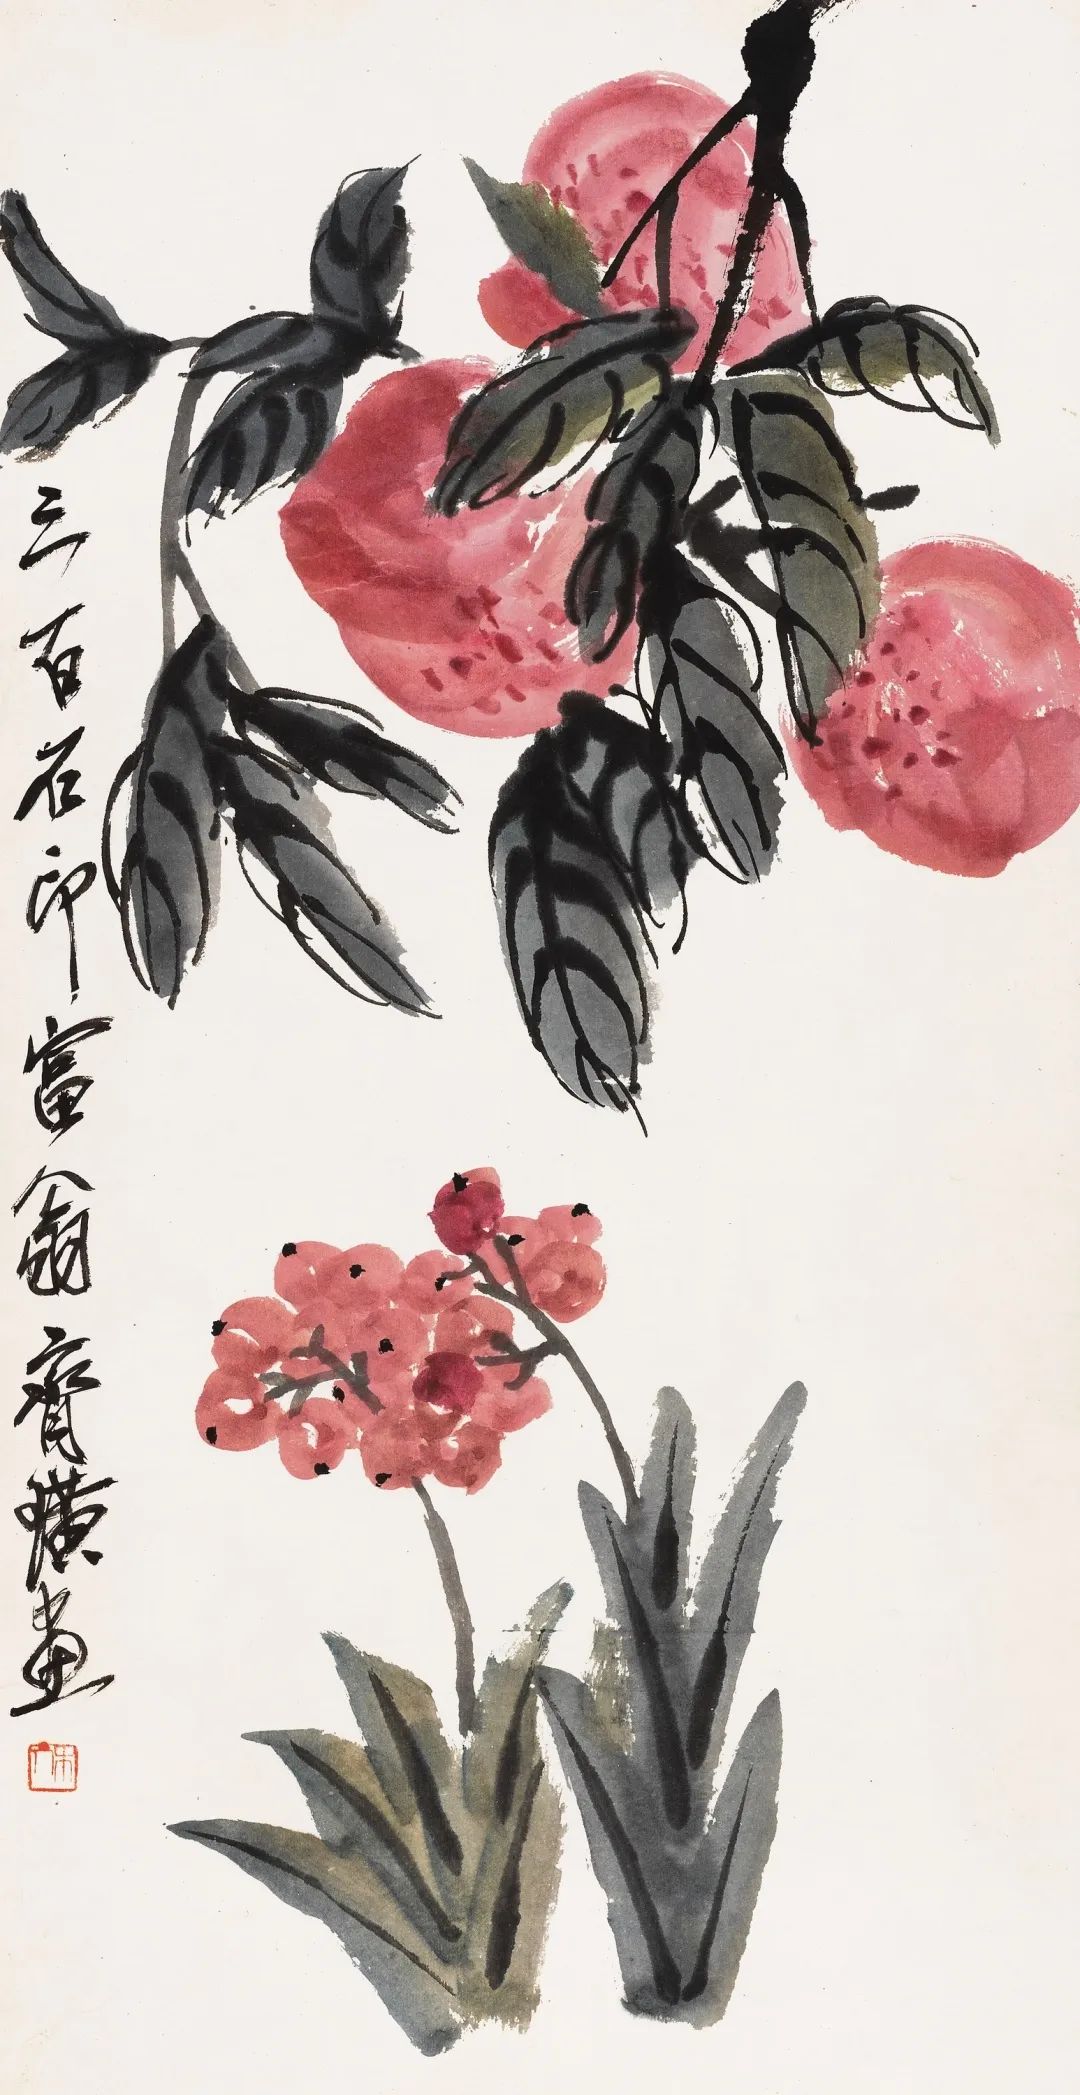 三百石印富翁齊璜畫
木人